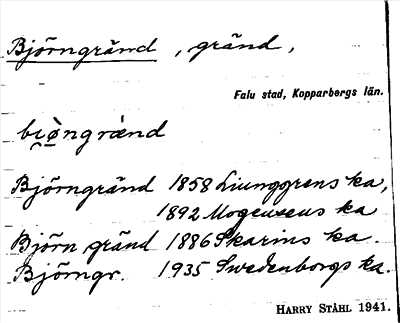 Björngränd, gränd,
Falu stad, Kopparbergs län.
bi̯ø̀ngrænd
Björngränd 1858 Liunggrens ka,
1892 Mogensens ka
Björn gränd 1886 Skarins ka.
Björngr. 1935 Swedenborgs ka.
HARRY STÅHL 1941.